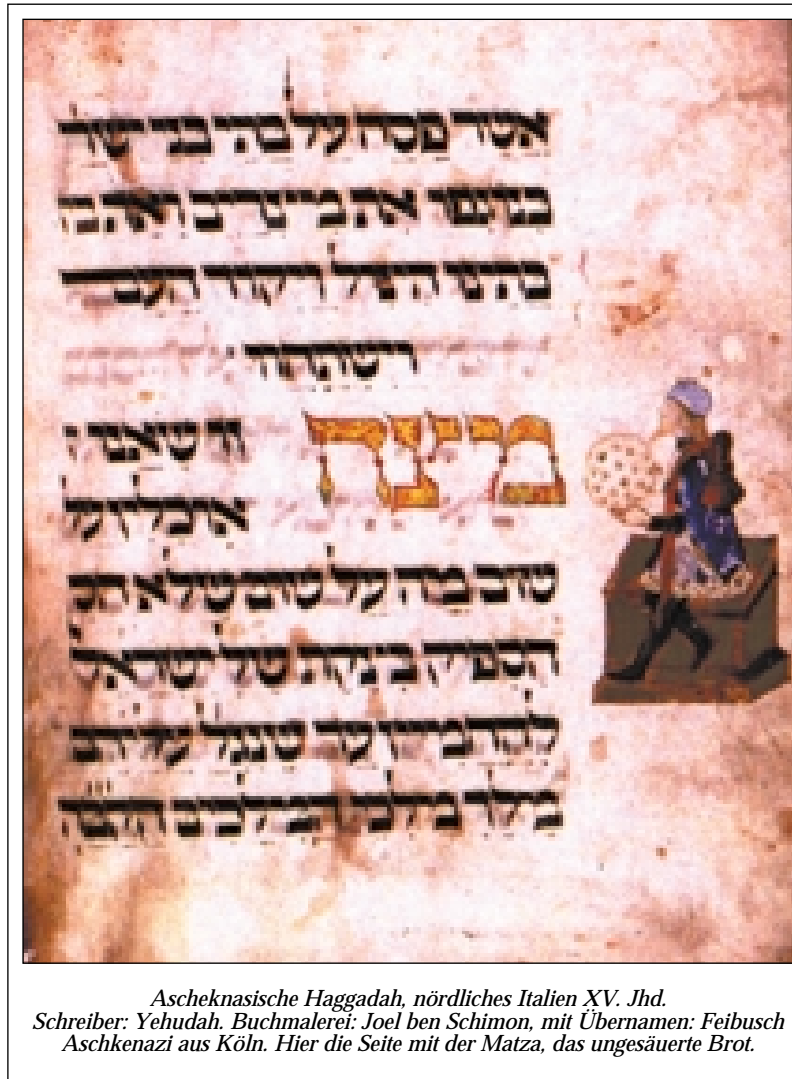 אשר פסח על בתי בני ישר
בנגפו את מצרים ואת ב
בתינו הציל ויקוד העם
וישתחוו
מצה זו שאנו
אוכלין על
שום מה על שום שלא הס
הספיק בצקת של ישראל
להחמיץ עד שנגל עליהם
מלך מלכי המלכים הקבה
Ascheknasische Haggadah, nördliches Italien XV. Jhd.
Schreiber: Yehudah. Buchmalerei: Joel ben Schimon, mit Übernamen: Feibusch
Aschkenazi aus Köln. Hier die Seite mit der Matza, das ungesäuerte Brot.